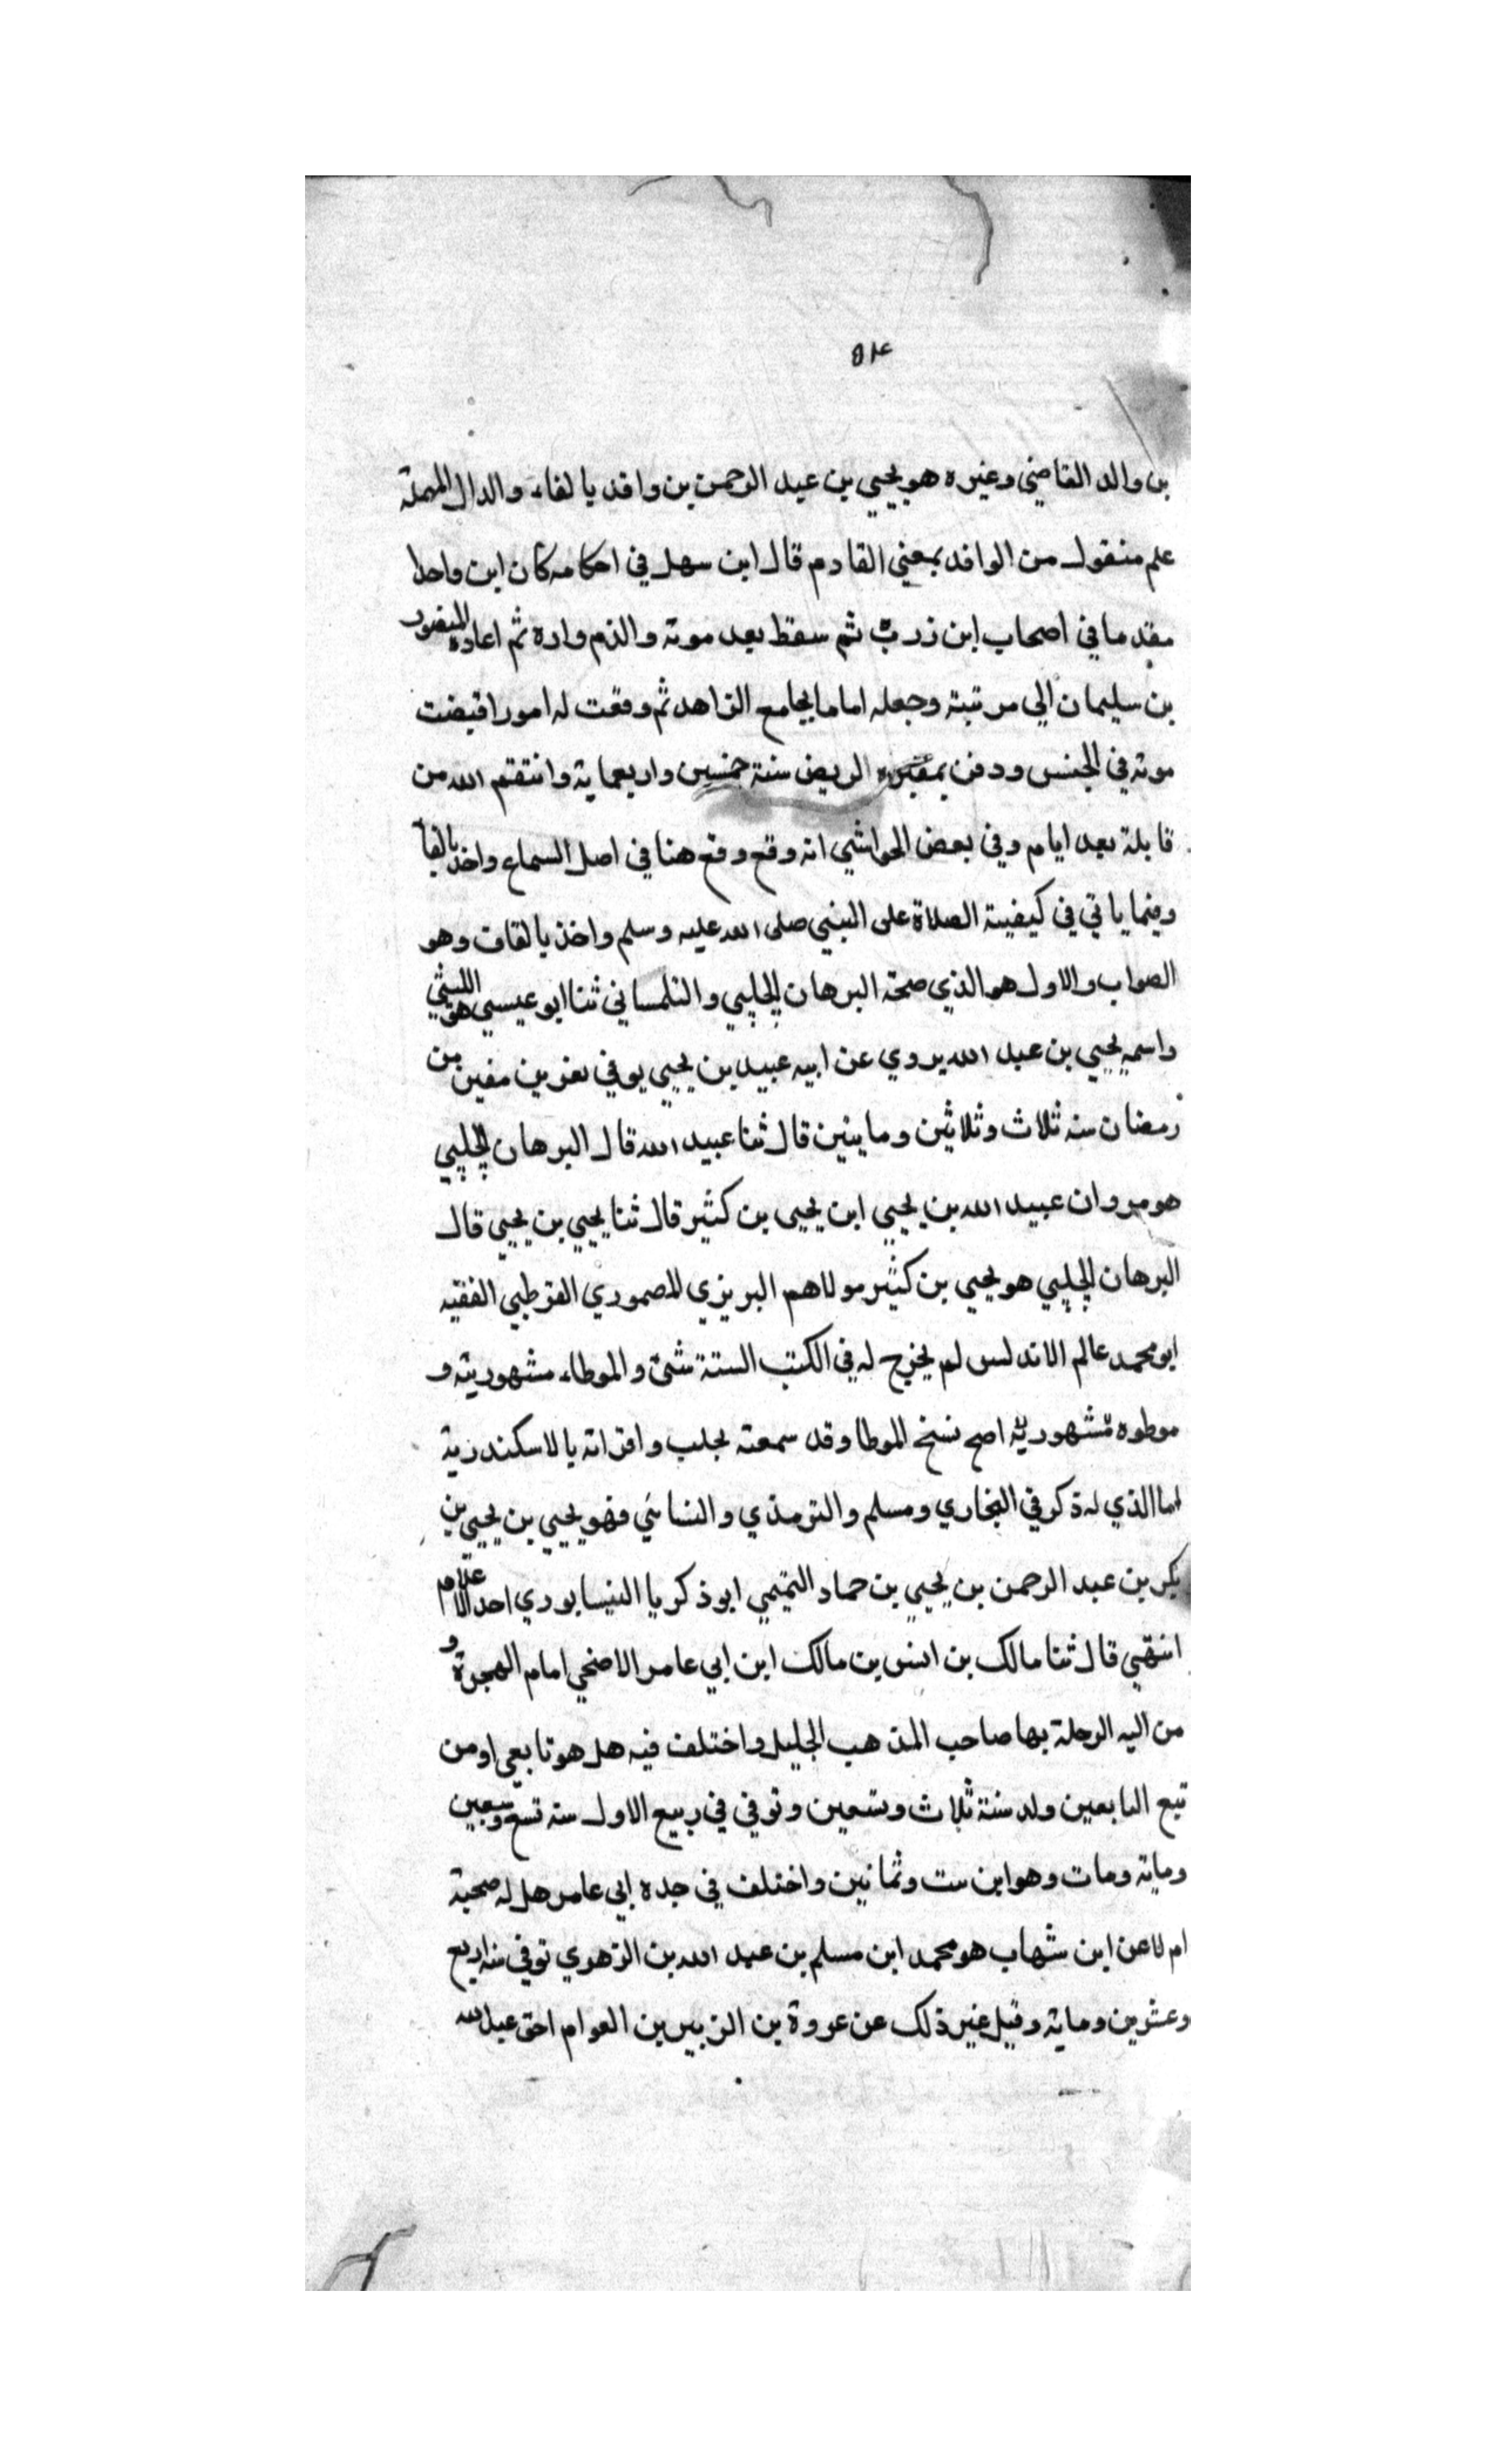 ٥١٤
بن والد القاضي وغيره هو يحيي بن عبد الرحمن بن وافد بالفاء والدال المهملة
علم منقول من الوافد بمعني القادم قال ابن سهل في احكامه كان ابن وافد
مقدما في اصحاب ابن زرب ثم سقط بعد موته والذم واره ثم اعاده المنصور
بن سليمان الي مرتبة وجعله اماما بجامع الزاهد ثم وقعت له امور اقيضت
موته في الجنس ودفن بمقبره الريض سنة خمسين واربعماية وانتقم الله من
قابلة بعد ايام وفي بعض الحواشي انه وقع وقع هنا في اصل السماع واخذ بالفا
وفيما ياتي في كيفية الصلاة على النبي صلى الله عليه وسلم واخذ بالقاف وهو
الصواب والاول هو الذي صحة البرهان الحلبي والتلمساني ثنا ابو عيسي هو الليثي
واسمه يحيي بن عبد الله يروي عن ابيه عبيد بن يحيي يوفي بعزين مفين من
رمضان سنه ثلاث وثلاثين وماينين قال ثنا عبيد الله قال البرهان الحلبي
هو مروان عبيد الله بن يحيي ابن يحيى بن كثير قال ثنا يحيي بن يحيي قال
البرهان الحلبي هو يحيي بن كثير مولاهم البريزي المصموري القرطبي الفقيه
ابو محمد عالم الاندلس لم يخرج له في الكتب الستة شئ والموطاء مشهوريته و
موطوه مشهوريته اصح نسخ الموطا وقد سمعته بحلب واقراته بالاسكندرية
اما الذي له ذكر في البخاري ومسلم والترمذي والنسائي فهو يحيي بن يحيي بن
بكر بن عبد الرحمن بن يحيي بن حماد التميمي ابو ذكريا النيسابوري احد الاعلام
انتهي قال ثنا مالك بن انس بن مالك ابن ابي عامر الاضحي امام الهجرة و
من اليه الرحلة بها صاحب المذهب الجليل واختلف فيه هل هو تابعي او من
تبع التابعين ولد سنة ثلاث وتسعين وتوفي في ربيع الاول سنه تسع وسبعين
وماية ومات وهو ابن ست وثمانين واختلف في جده ابي عامر هل له صحبة
ام لا عن ابن شهاب هو محمد ابن مسلم بن عبد الله بن الزهوي توفي سنه اربع
وعشرين وماية وقيل غير ذلك عن عروة بن الزبير بن العوام اخي عبد الله